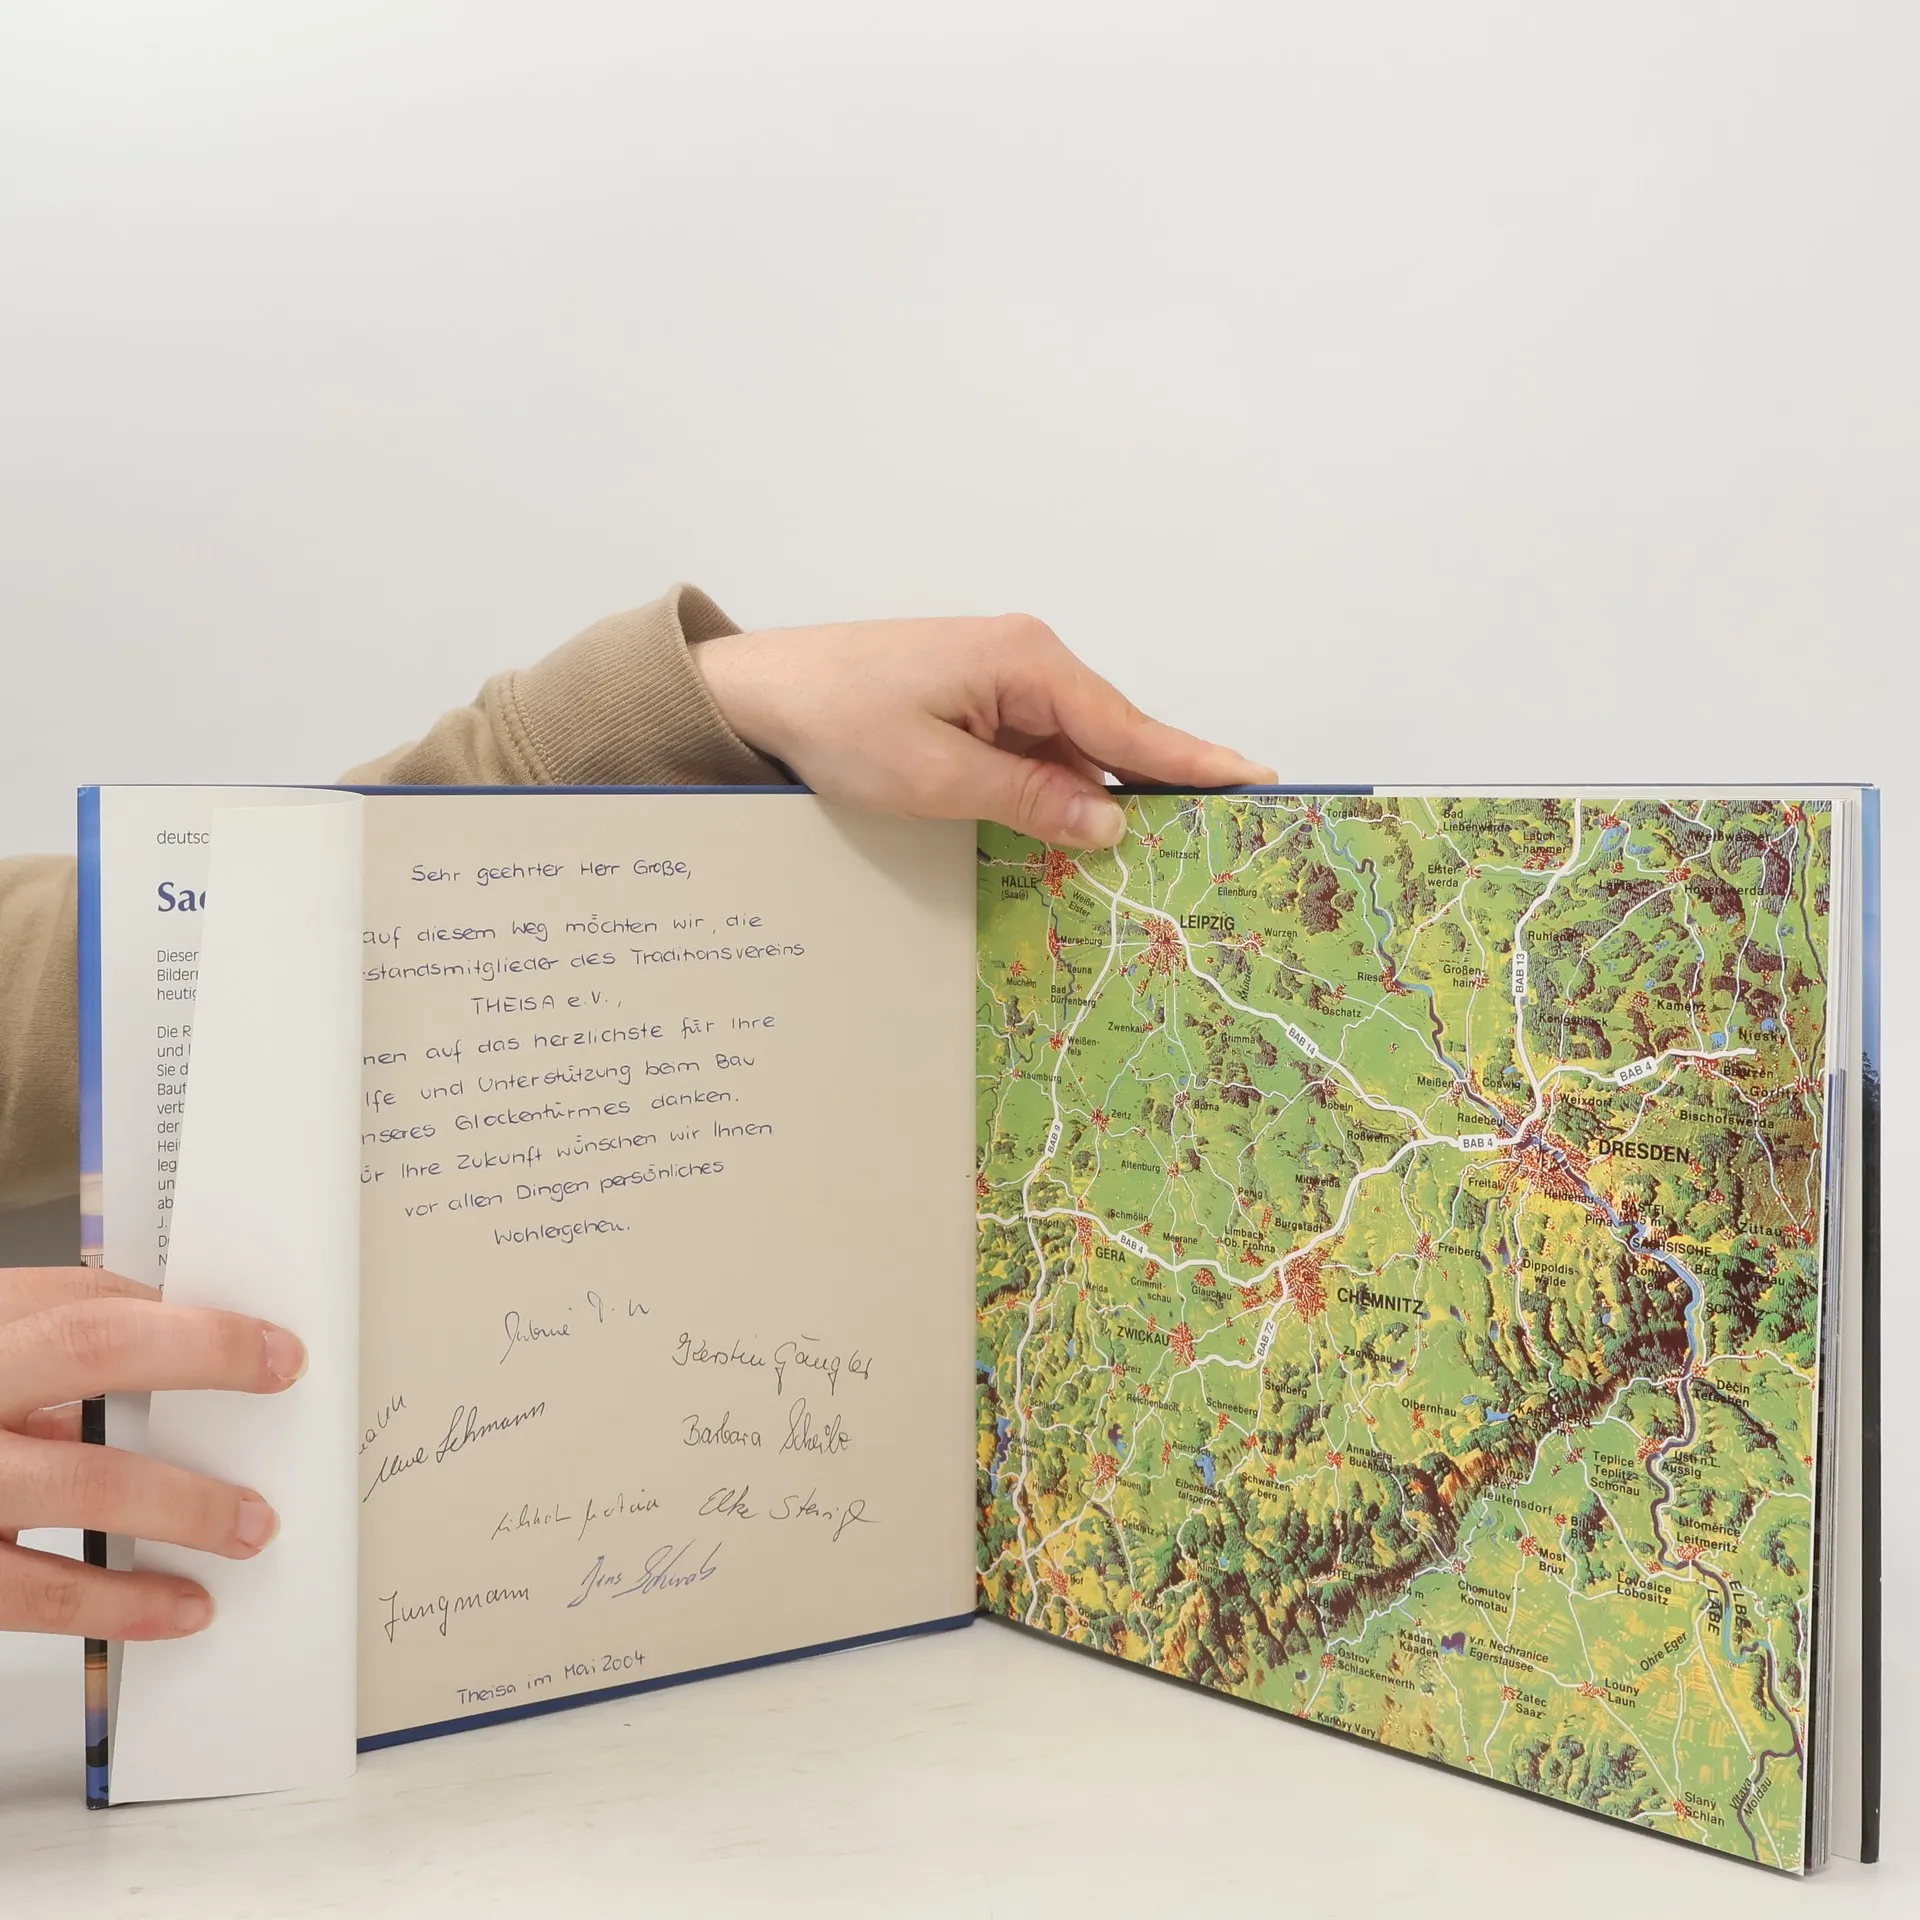 deutsc
Sac
Dieser
Bilder
heutig
Die R
und
Sie d
Baut
verb
der
Hei
leg
un
ab
J.
D
N
Sehr geehrter Herr Große,
auf diesem Weg möchten wir, die
standsmitglieder des Traditionsvereins
THEISA e.V.,
nen auf das herzlichste für Ihre
lfe und Unterstützung beim Bau
nseres Glockentürmes danken.
ür Ihre Zukunft wünschen wir Ihnen
vor allen Dingen persönliches
Wohlergehen.
Kerstin Gängler
Uwe Lehmann
Barbara Scheibe
Elke
Jens Schwab
Jungmann
Theisa im Mai 2004
Torgau
Bad
Liebenwerda
Lauch
hammer
Weißwasser
Delitzsch
HALLE
(Saale)
Eilenburg
Elster
werda
Hoyerswerda
Weiße
Elster
LEIPZIG
Wurzen
Merseburg
Ruhland
Leuna
Mücheln
Bad
Dürrenberg
Riesa
Großen
hain
BAB 13
Kamenz
Oschatz
Königsbrück
Niesky
Zwenkau
Grimma
BAB 14
Weißen-
fels
Naumburg
Meißen
Coswig
BAB 4
Bautzen
Görlitz
Zeitz
Borna
Döbeln
Radebeul
Weixdorf
Bischofswerda
Roßwein
BAB 4
DRESDEN
BAB 9
Altenburg
Mittweida
Freital
Heidenau
Penig
BASTEI
Pirna
Hermsdorf
Schmölln
Burgstädt
Zittau
BAB 4
Meerane
Limbach
Ob. Frohna
Freiberg
SÄCHSISCHE
GERA
Dippoldis-
walde
Bad Schandau
Weida
Crimmit-
schau
Glauchau
CHEMNITZ
SCHWEIZ
ZWICKAU
BAB 72
Zschopau
Greiz
Stollberg
Děčín
Tetschen
Reichenbach
Schneeberg
Olbernhau
Auerbach
Aue
Annaberg-
Buchholz
Teplice
Teplitz-
Schönau
Ústí n.L.
Aussig
Plauen
Eibenstock
talsperre
Schwarzen-
berg
Litvínov
Leutensdorf
Oelsnitz
Litoměřice
Leitmeritz
Most
Brüx
Hof
1214 m
Chomutov
Komotau
Lovosice
Lobositz
ELBE
LABE
Kadaň
Kaaden
v.n. Nechranice
Egerstausee
Ohře Eger
Ostrov
Schlackenwerth
Louny
Laun
Žatec
Saaz
Karlovy Vary
Slaný
Schlan
Vltava
Moldau